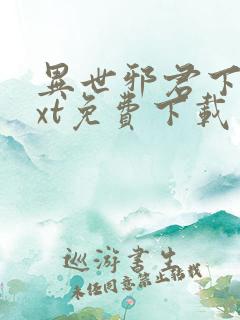 異世邪君下
xt免費下載
巡游書生
未经同意禁止转载